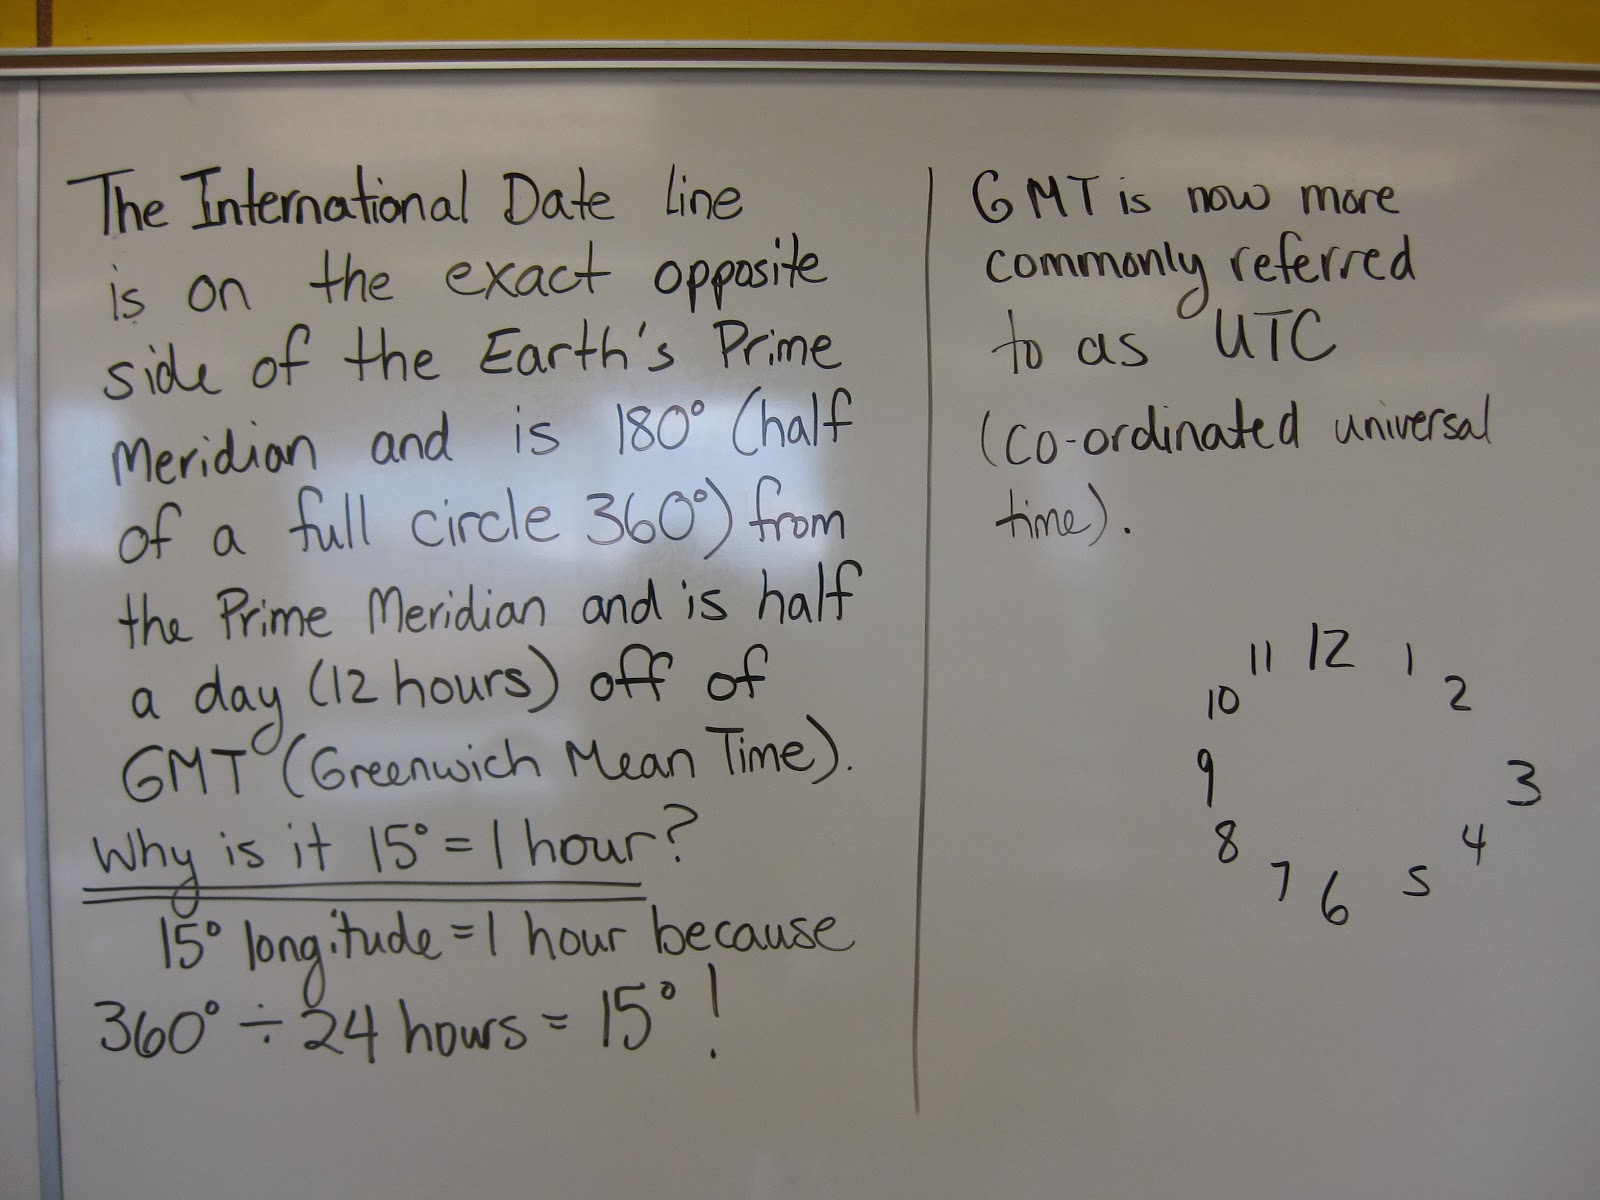 The International Date Line
is on the exact opposite
side of the Earth's Prime
Meridian and is 180° (half
of a full circle 360°) from
the Prime Meridian and is half
a day (12 hours) off of
GMT (Greenwich Mean Time).
Why is it 15° = 1 hour?
15° longitude = 1 hour because
360° ÷ 24 hours = 15° !
GMT is now more
commonly referred
to as UTC
(co-ordinated universal
time).
11 12 1
10 2
9 3
8 4
7 6 5